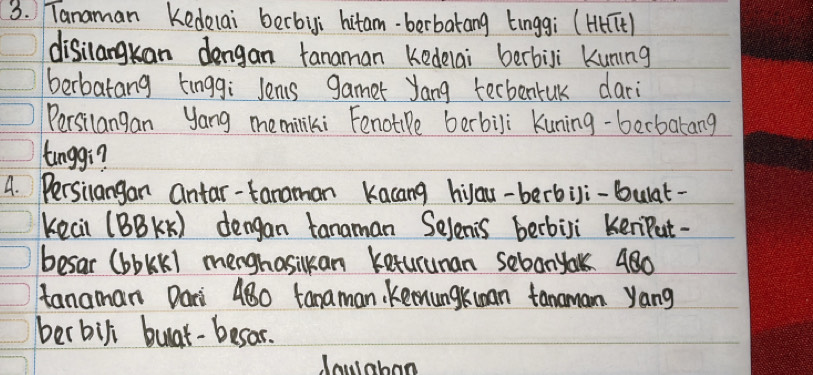 3. Tanaman kedelai berbiji hitam-berbatang tinggi (HHTt)
disilangkan dengan tanaman kedelai berbiji kuning
berbatang tinggi Jenis gamet yang terbentuk dari
Persilangan yang memiliki Fenotipe berbiji kuning-berbatang
tinggi?
4. Persilangan antar-tanaman kacang hijau-berbiji-bulat-
kecil (BBkk) dengan tanaman Sejenis berbiji keriput-
besar (bbKK) menghasilkan keturunan sebanyak 480
tanaman Dari 480 tanaman.kemungkinan tanaman yang
berbiji bulat-besar.
Jawaban